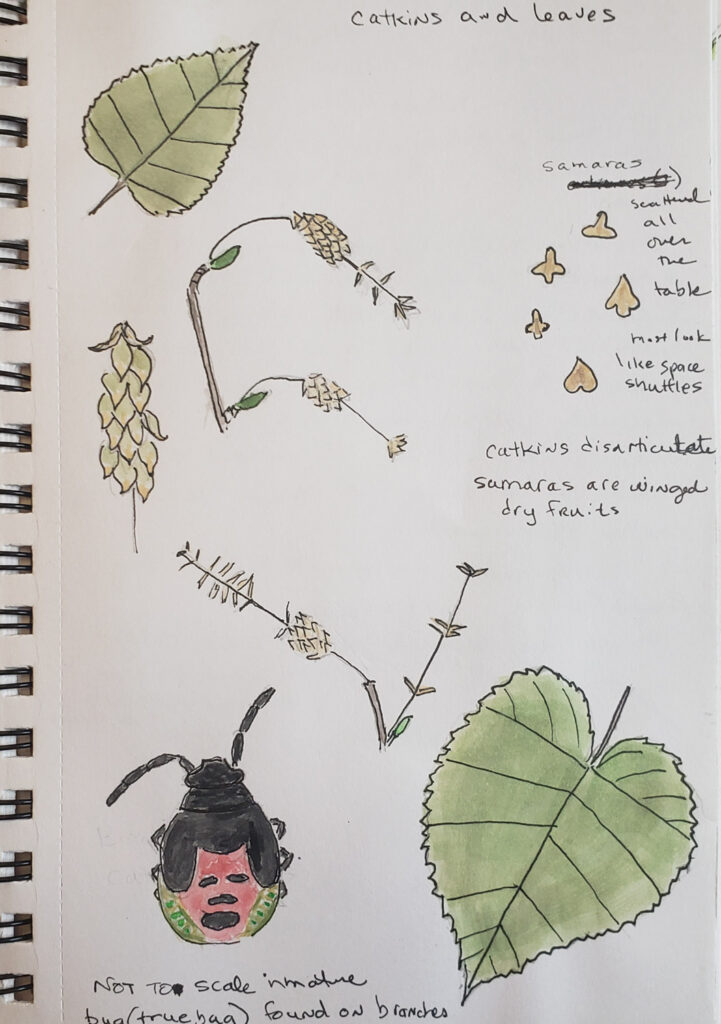 catkins and leaves
samaras
scattered
all
over
the
table
most look
like space
shuttles
catkins disarticulate
samaras are winged
dry fruits
NOT TO scale immature
bug (true bug) found on branches